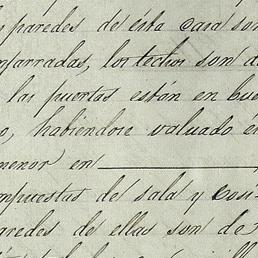 paredes de ésta casa son
mparradas, los techos son de
las puertas están en bue
o, habiendose valuado é
menor en
mpuestas de sala y coci
aredes de ellas son de